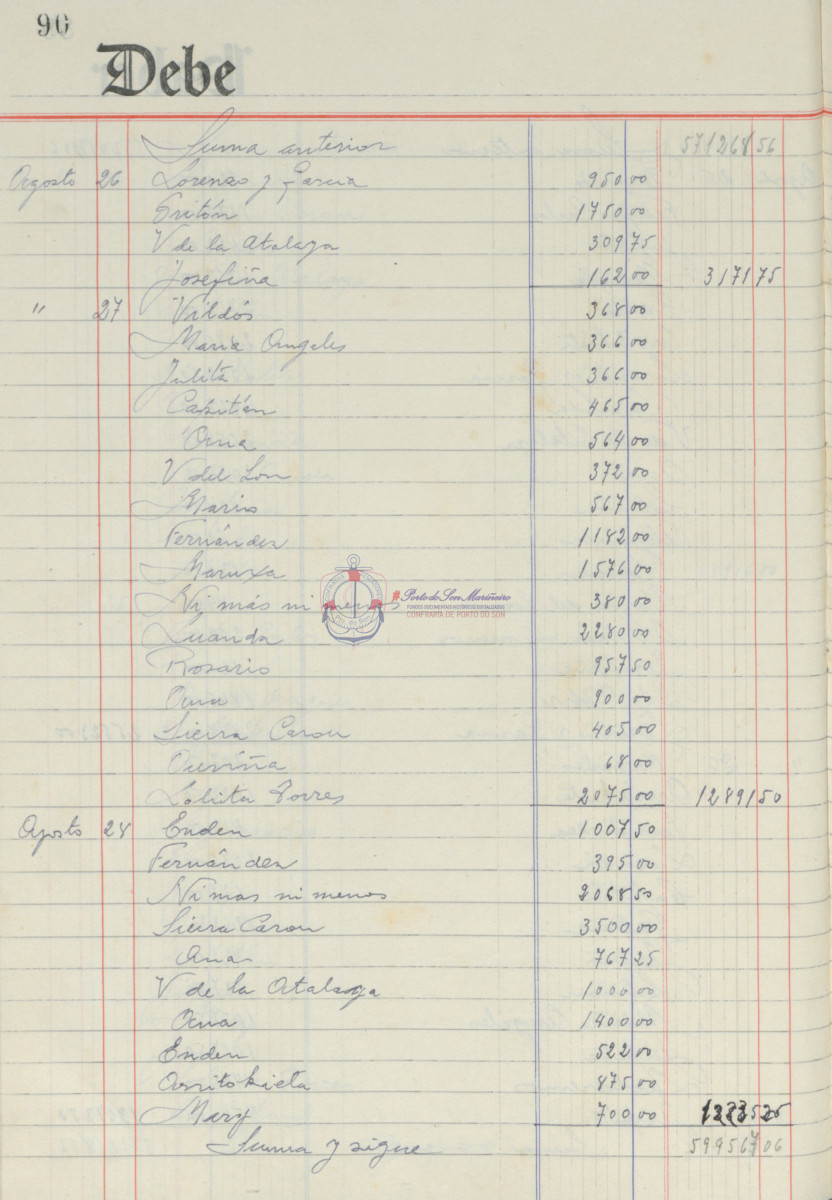 90
Debe
Suma anterior 571268 56
Agosto 26 Lorenzo y Garcia 950 00
Tritón 1750 00
V de la Atalaya 309 75
Josefiña 162 00 3171 75
" 27 Vildós 368 00
Maria Angeles 366 00
Julita 366 00
Capitán 465 00
Ana 564 00
V del Son 372 00
Mario 567 00
Fernández 1182 00
Maruxa 1576 00
Ni más ni menos 380 00
Luanda 2280 00
Rosario 957 50
Ana 900 00
Sieira Carou 405 00
68 00
Lolita Torres 2075 00 12891 50
Agosto 28 Enden 1007 50
Fernández 395 00
Ni mas ni menos 2068 50
Sieira Carou 3500 00
Ana 767 25
V de la Atalaya 1000 00
Ana 1400 00
Enden 522 00
Arritokieta 875 00
Mary 700 00 12235 25
Suma y sigue 599567 06
Porto do Son Mariñeiro
FONDOS DOCUMENTAIS HISTÓRICOS DIXITALIZADOS
CONFRARÍA DE PORTO DO SON